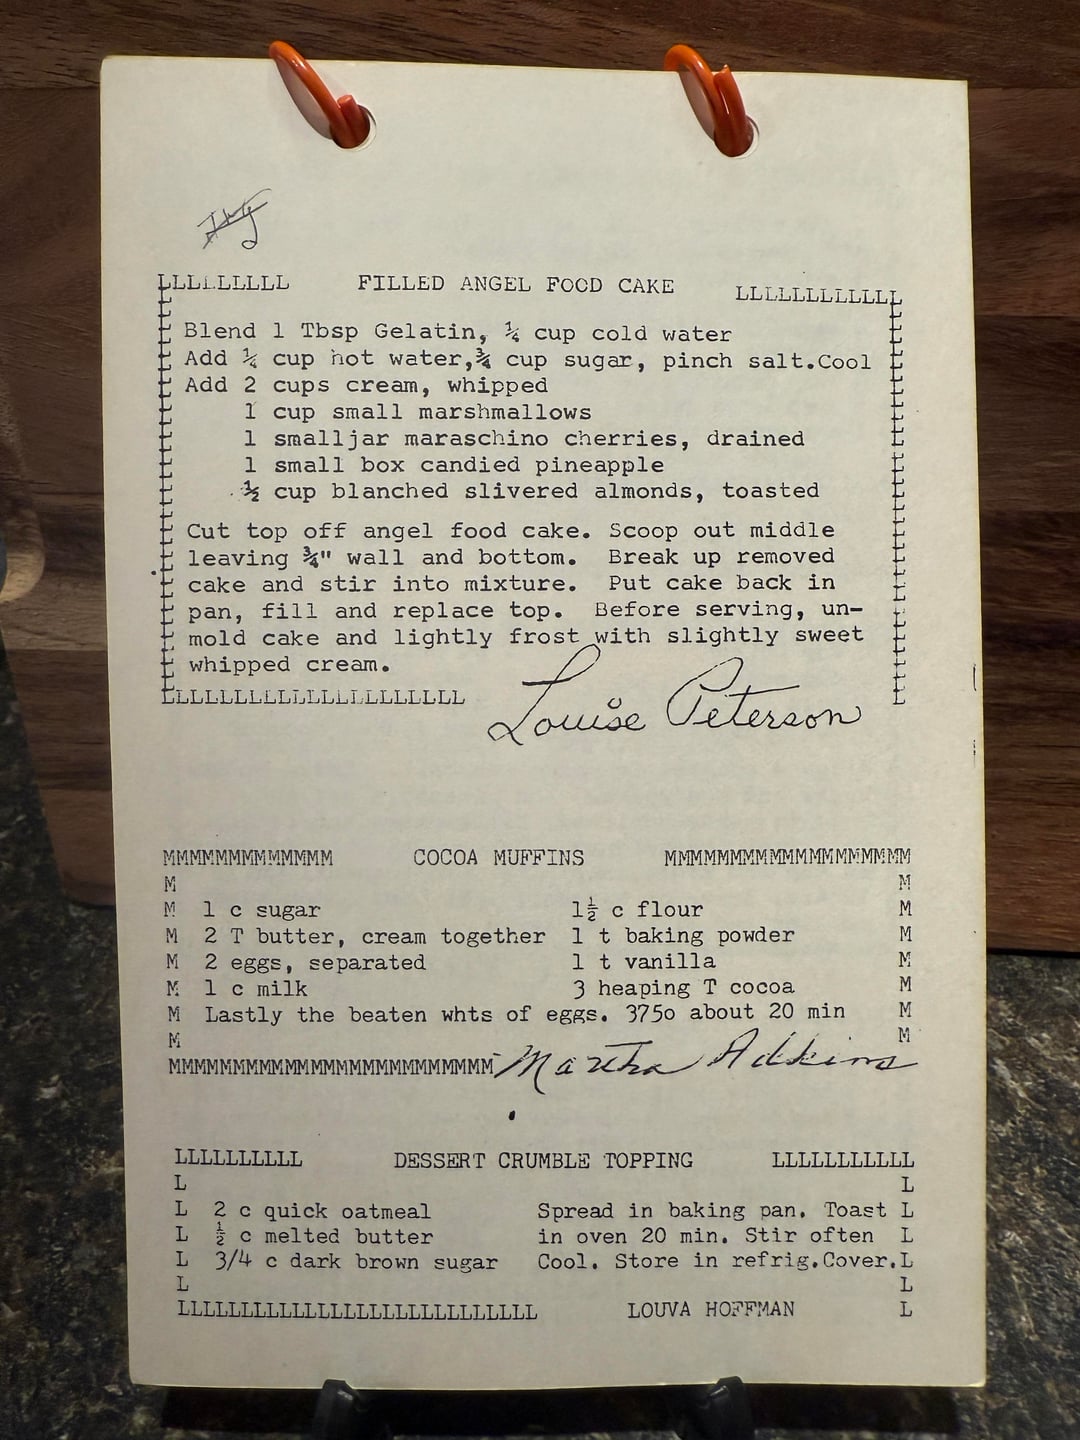 LLLLLLLLL FILLED ANGEL FOOD CAKE LLLLLLLLLLLL
Blend 1 Tbsp Gelatin, ¼ cup cold water
Add ¼ cup hot water,¾ cup sugar, pinch salt.Cool
Add 2 cups cream, whipped
1 cup small marshmallows
1 smalljar maraschino cherries, drained
1 small box candied pineapple
½ cup blanched slivered almonds, toasted
Cut top off angel food cake. Scoop out middle
leaving ¾" wall and bottom. Break up removed
cake and stir into mixture. Put cake back in
pan, fill and replace top. Before serving, un-
mold cake and lightly frost with slightly sweet
whipped cream.
LLLLLLLLLLLLLLLLLLLL Louise Peterson
MMMMMMMMMMMMM COCOA MUFFINS MMMMMMMMMMMMMMMMMMM
M M
M 1 c sugar 1½ c flour M
M 2 T butter, cream together 1 t baking powder M
M 2 eggs, separated 1 t vanilla M
M 1 c milk 3 heaping T cocoa M
M Lastly the beaten whts of eggs. 375o about 20 min M
M M
MMMMMMMMMMMMMMMMMMMMMMMMM Martha Adkins
LLLLLLLLLL DESSERT CRUMBLE TOPPING LLLLLLLLLLL
L L
L 2 c quick oatmeal Spread in baking pan. Toast L
L ½ c melted butter in oven 20 min. Stir often L
L 3/4 c dark brown sugar Cool. Store in refrig.Cover.L
L L
LLLLLLLLLLLLLLLLLLLLLLLLLLLL LOUVA HOFFMAN L